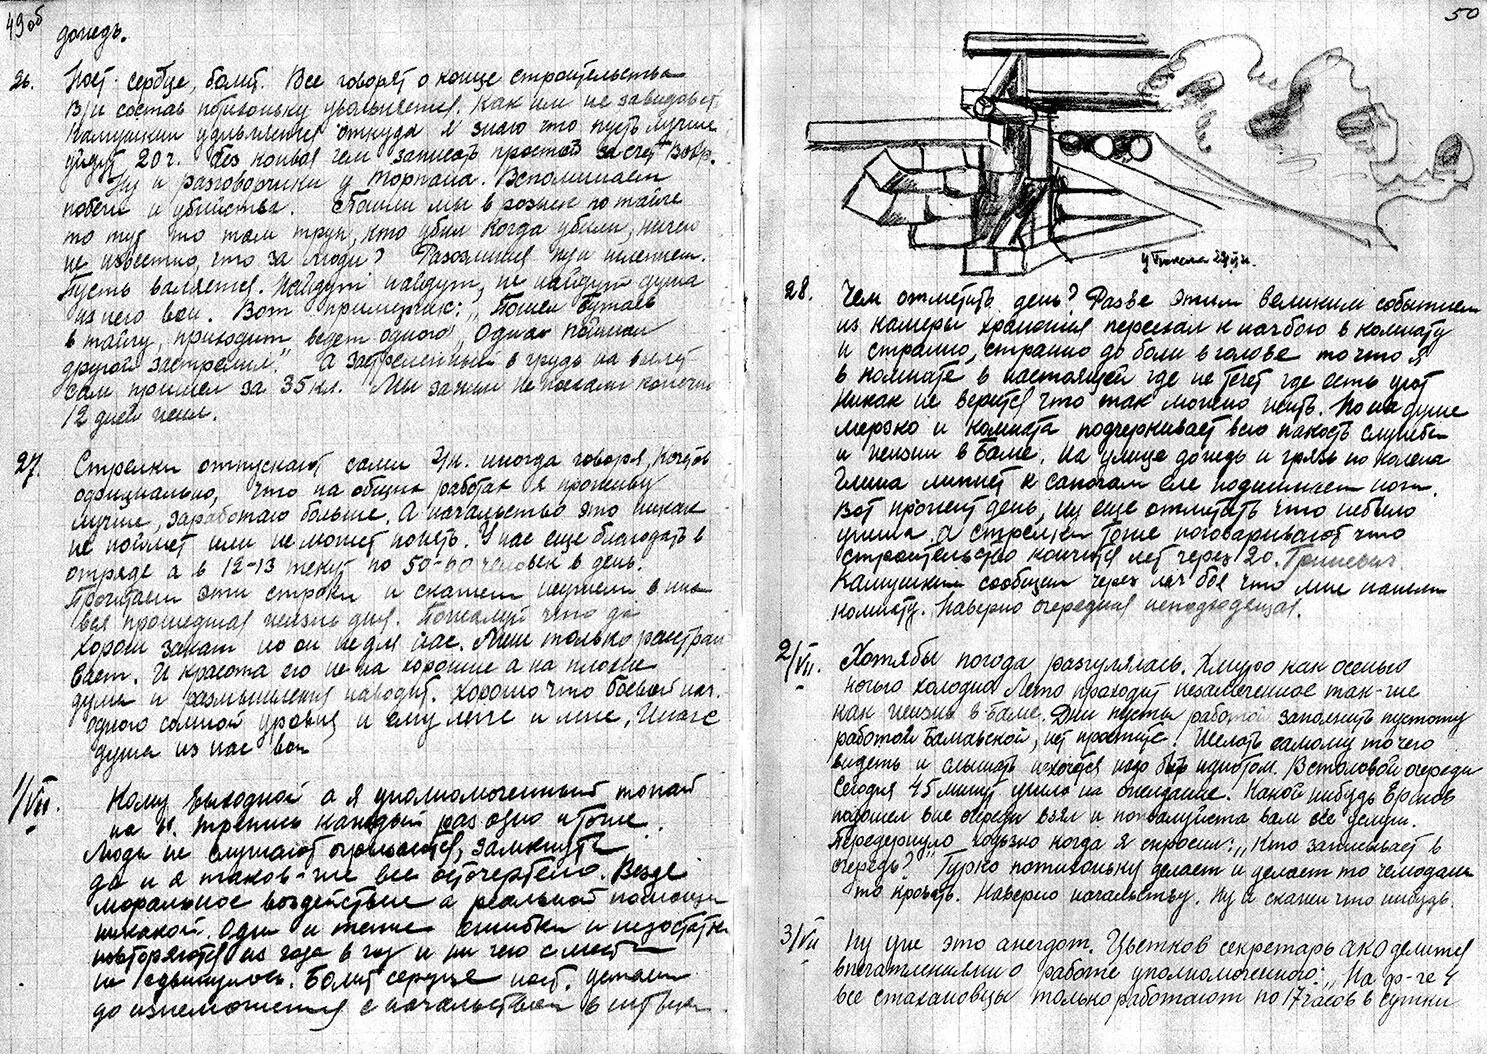 49об
дождь.
26. Ноет сердце, болит. Все говорят о конце строительства
В/н состав потихоньку увольняется. Как им не завидовать
Камушкин удивляется откуда я знаю что пусть лучше
уйдут 20 ч. без конвоя чем записать простой за счет Вохр.
Ну и разговорчики у Торпана. Вспоминаем
побеги и убийства. Пошли мы в розыск по тайге
то тут то там труп, кто убил когда убили, ничего
не известно, что за люди? Разозлимся пуи плюнем.
Пусть валяется. Найдут найдут, не найдут душа
из него вон. Вот примерчик: „Пошел Бутаев
в тайгу, приходит ведет одного „Одного поймал
другой застрелил". А застреленный в грудь на вылет
сам пришел за 35 кл. Мы за ним не поехали конечно
12 дней шел.
27. Стрелки отпускают сами з/к. иногда говоря, почти
официально, что на общих работах я проживу
лучше, заработаю больше. А начальство это никак
не поймет или не может понять. У нас еще благодать в
отряде а в 12-13 текут по 50-60 человек в день.
Прочитаем эти строки и скажем неужели в них
вся прошедшая жизнь дня. Пожалуй что да
хорош закат но он не для нас. Меня только расстраи
вает. И красота его не на хорошие а на плохие
думы и размышления наводит. Хорошо что боевой нач.
одного со мной уровня и ему легче и мне, Иначе
душа из нас вон
1/VII. Кому выходной а я уполномоченный топай
на ж. трепись каждый раз одно и тоже.
Люди не слушают огрызаются, замкнуты
да и я таков-же все осточертело. Везде
моральное воздействие а реальной помощи
никакой. Одни и теже ошибки и недостатки
повторяются из года в год и ни чего с места
не сдвинулось. Болит сердце ноет. устаем
до изнеможения с начальством в
50
у Тыгена 28/VI ж.
28. Чем отметить день? Разве этим великим событием
из камеры хранения переехал к начбою в комнату
и странно, странно до боли в голове то что я
в комнате в настоящей где не течет где есть уют
Никак не верится что так можно жить. Но на душе
мерзко и комната подчеркивает всю пакость службы
и жизни в Баме. На улице дождь и грязь по колена
Глина липнет к сапогам еле поднимаем ноги.
Вот прожит день, ну еще отметить что небыло
ушла. А стрелки тоже поговаривают что
строительство кончится лет через 20. Гриневич
Камушкин сообщил через нач боя что мне нашли
комнату. Наверно очередная неподходящая.
2/VII. Хотябы погода разгулялась. Хмуро как осенью
ночью холодно. Лето проходит незамеченное так-же
как жизнь в Баме. Дни пусты работой заполнить пустоту
работой Бамлаской, нет простите. Желать самому то чего
видеть и слышать не хочется надо быть идиотом. В столовой очереди
Сегодня 45 минут ушло на ожидание. Какой нибудь Ершов
подошел вне очереди взял и пожалуйста вам все услуги.
Передернуло подлюзно когда я спросил: „Кто записывает в
очередь?" Турко потихоньку делает и делает то чемоданы
то кровать. Наверно начальству. Ну а скажи что нибудь.
3/VII Ну уже это анегдот. Цветков секретарь АКО делится
впечатлениями о работе уполномоченного: „На ф-ге 4
все стахановцы только работают по 17 часов в сутки